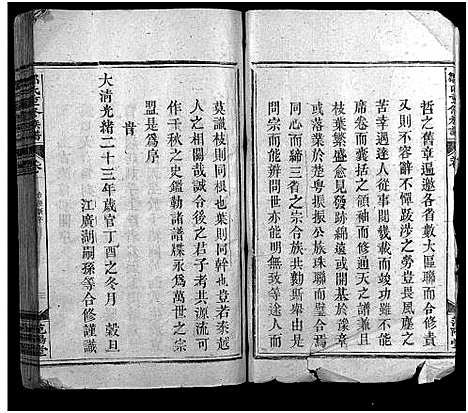 哲之舊章遍邀各省數大區聯而合修責
又則不容辭不憚跋涉之勞豈畏風塵之
苦幸遇達人從事閱幾載而竣功雖不能
卷而囊括之領袖而修通天之譜兼且
枝葉繁盛愈見發跡綿遠或開基於豫章
或落業於楚粵振振公族珠聯而
同心而締三省之宗合族共勷斯舉由
問世而能辨問世亦能明無致等途人而
莫識枝則同根也葉則同幹也豈若秦越
人之相關哉誠令後之君子考其源流可
作千秋之史鑑勒諸譜牒永為萬世之宗
盟是為序
旹
大清光緒二十三年歲官丁酉之冬月穀旦
江廣湖嗣孫等合修謹識